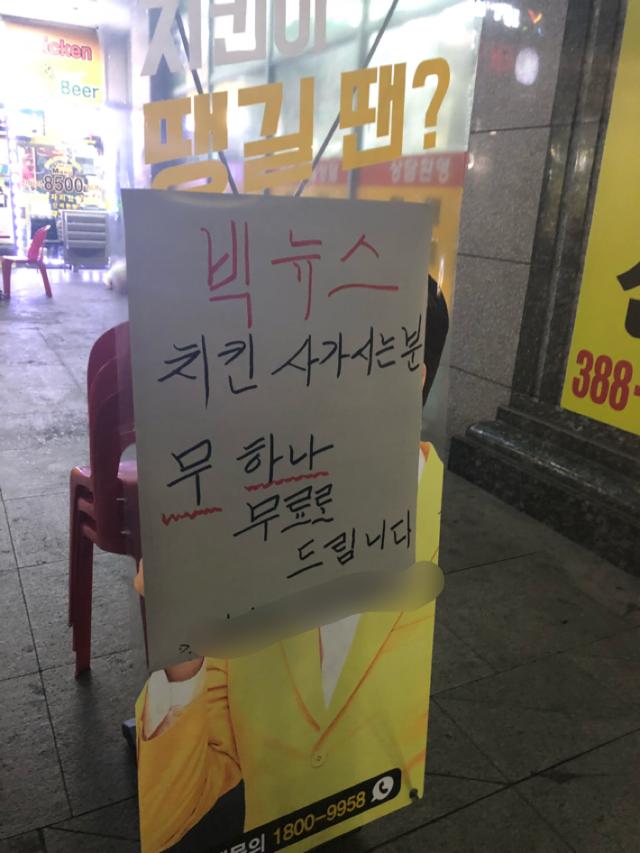 icken
Beer
8500
치킨이
땡길 땐?
상달환영
빅뉴스
치킨 사가시는분
무 하나
무료로
드립니다
388-
문의 1800-9958